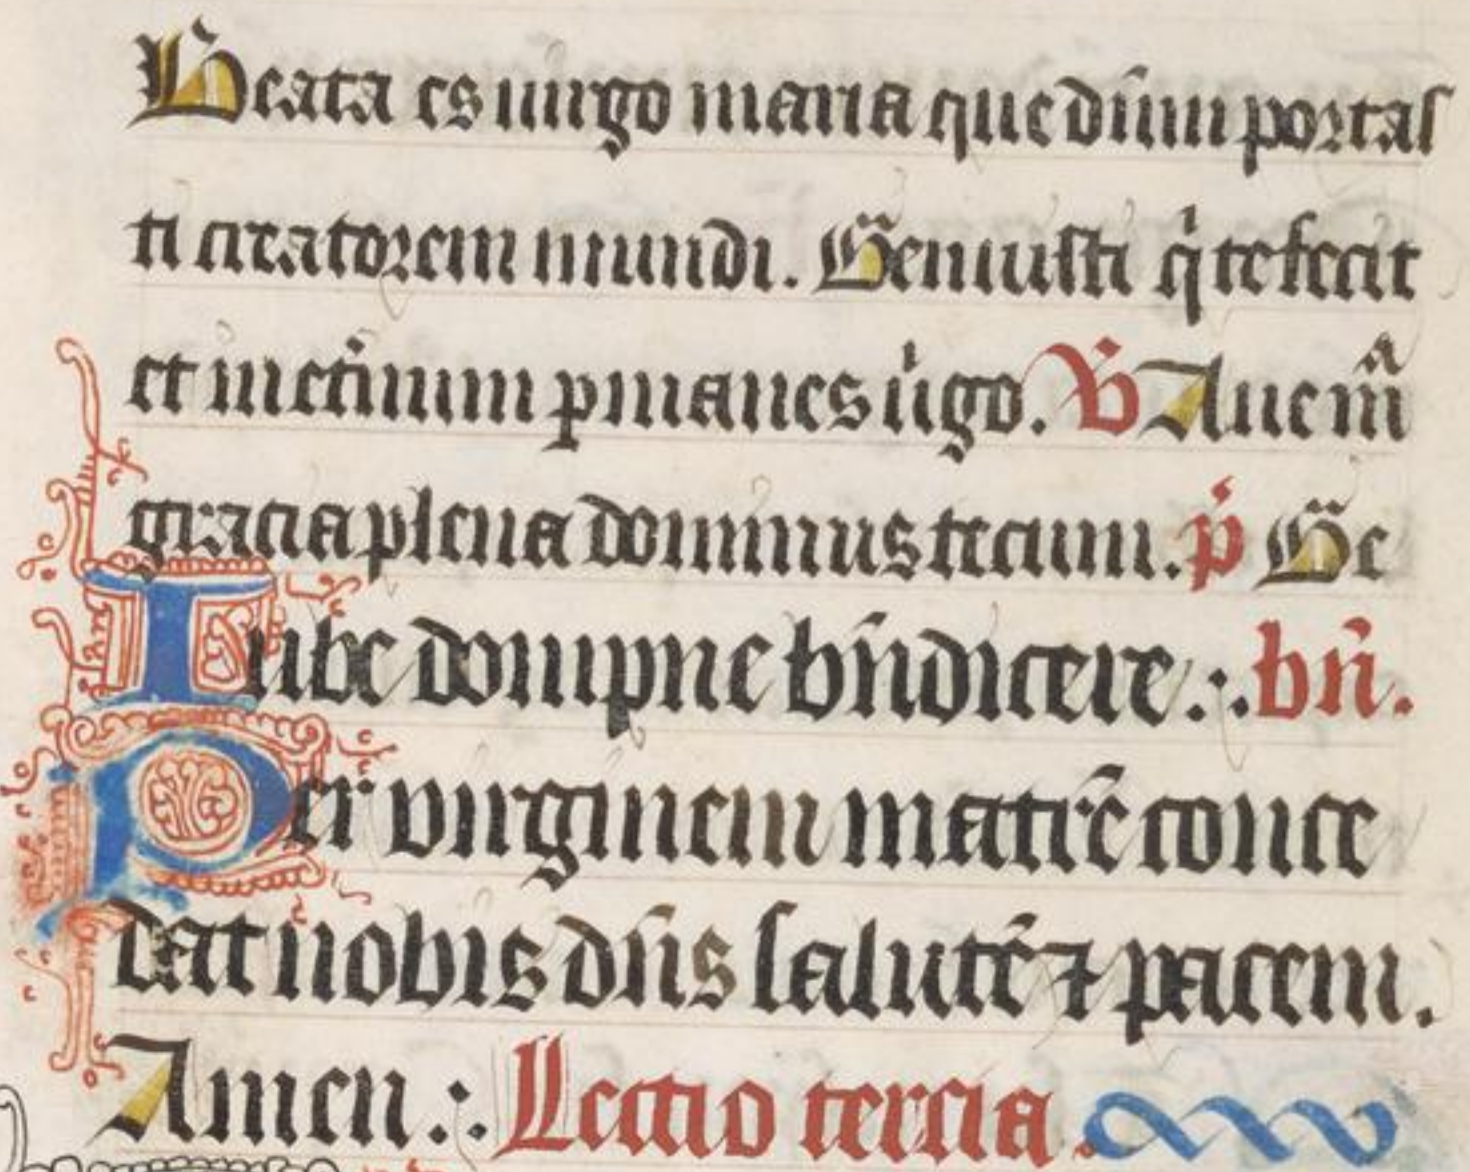 Beata es uirgo maria que dn̄m portas
ti creatorem mundi. Genuisti qͥ te fecit
et inet̾num ꝑmanes uͥgo. ℣ Aue mᷓ
gracia plena dominus tecum. p̾ Ge
Iube dompne bn̄dicere :. bn̄.
Per virginem matrē conce
dat nobis dn̄s salutē ⁊ pacem.
Amen :. Lectio tercia.